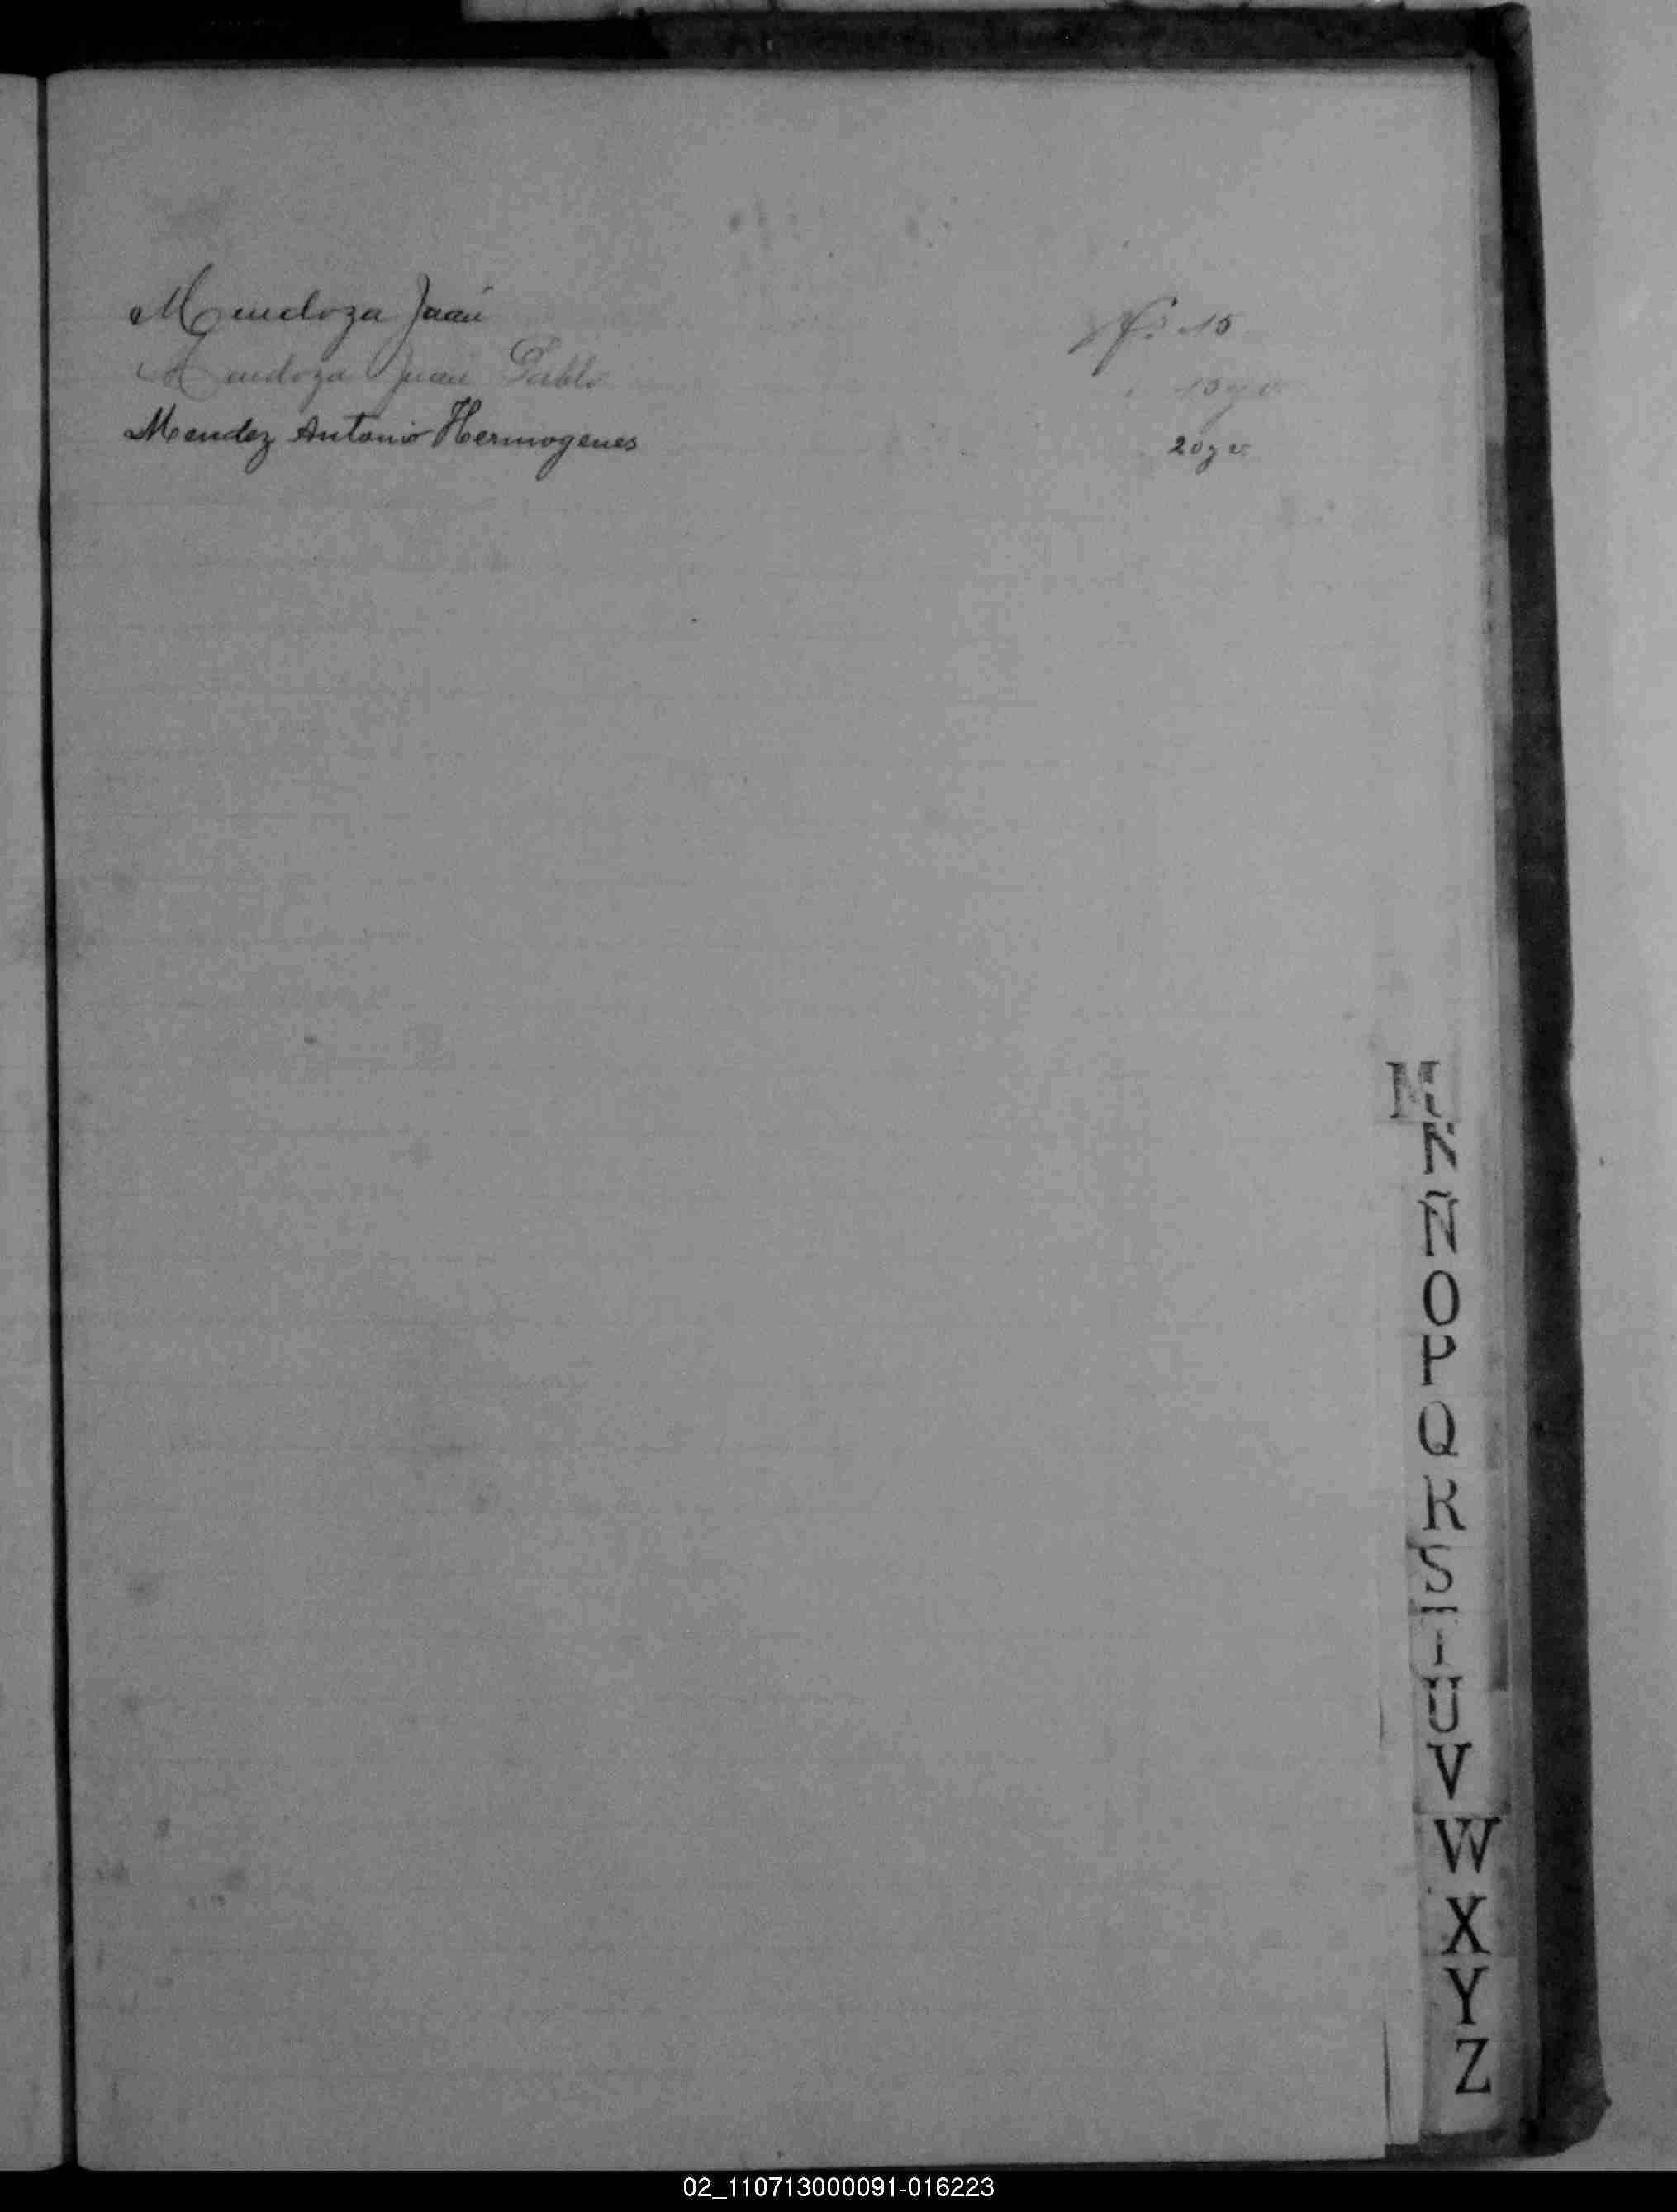 Mendoza Juan fs 15
Mendoza Juan Pablo 15 y v
Mendez Antonio Hermogenes 20 y v
K
Ñ
O
P
Q
R
S
T
U
V
W
X
Y
Z
02_110713000091-016223